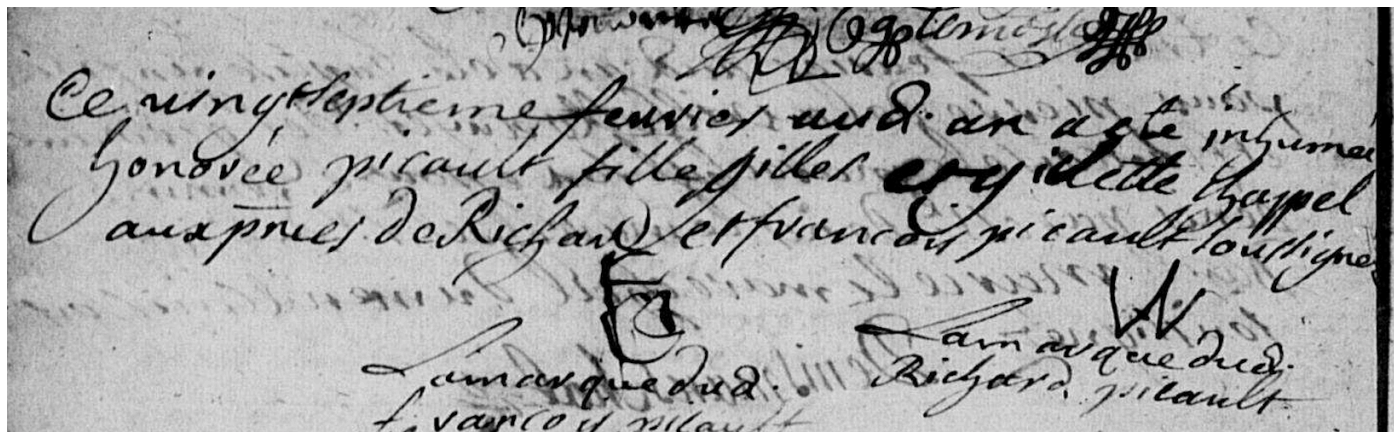 Ce vingtseptieme feuvrier aud. an a eté inhumée
honorée picault fille gilles et gillette chappel
aux pnces de Richard et francois picault soussignes
La marque dud. La marque dud.
francois picault Richard picault